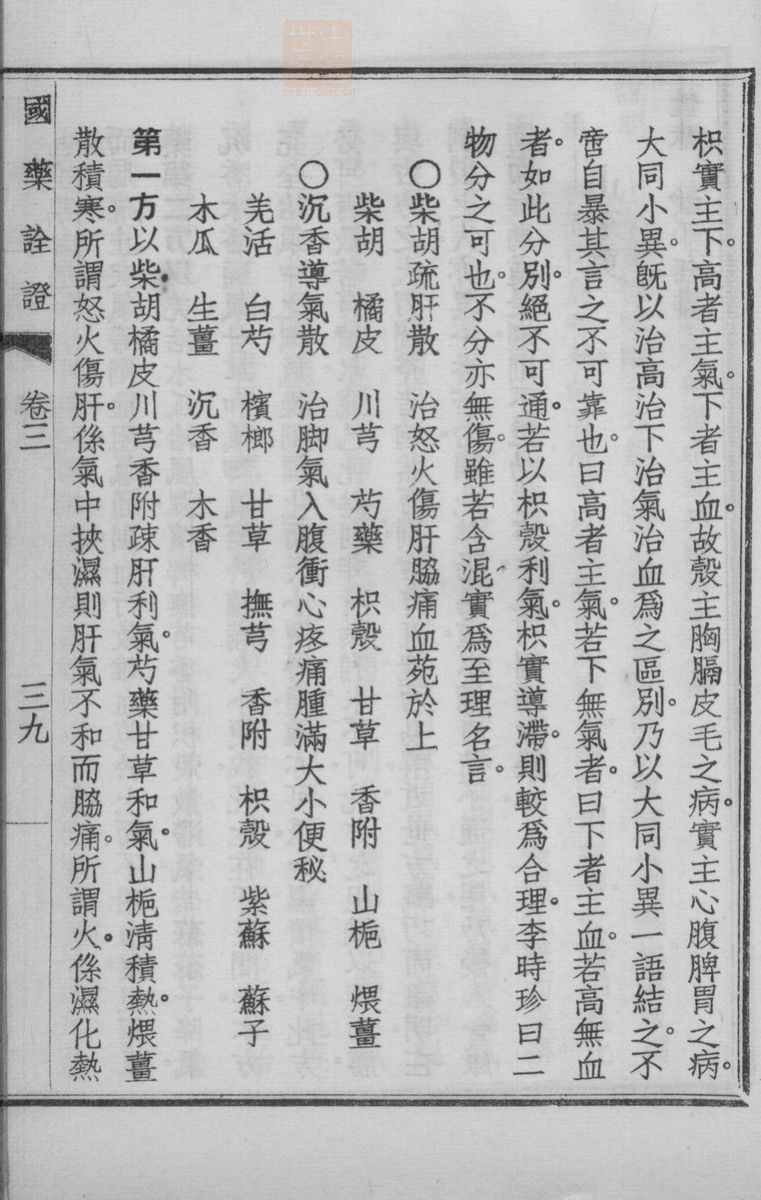 枳實主下。高者主氣。下者主血。故殼主胸膈皮毛之病。實主心腹脾胃之病。
大同小異。旣以治高治下治氣治血爲之區別。乃以大同小異一語結之。不
啻自暴其言之不可靠也。曰高者主氣。若下無氣者。曰下者主血。若高無血
者。如此分別。絕不可通。若以枳殼利氣。枳實導滯。則較爲合理。李時珍曰二
物分之可也。不分亦無傷。雖若含混。實爲至理名言。
○柴胡疏肝散　治怒火傷肝脇痛血苑於上
柴胡　橘皮　川芎　芍藥　枳殼　甘草　香附　山梔　煨薑
○沉香導氣散　治脚氣入腹衝心疼痛腫滿大小便秘
羌活　白芍　檳榔　甘草　撫芎　香附　枳殼　紫蘇　蘇子
木瓜　生薑　沉香　木香
第一方以柴胡橘皮川芎香附疎肝利氣。芍藥甘草和氣。山梔淸積熱。煨薑
散積寒。所謂怒火傷肝。係氣中挾濕則肝氣不和而脇痛。所謂火。係濕化熱
國藥詮證　卷三　三九